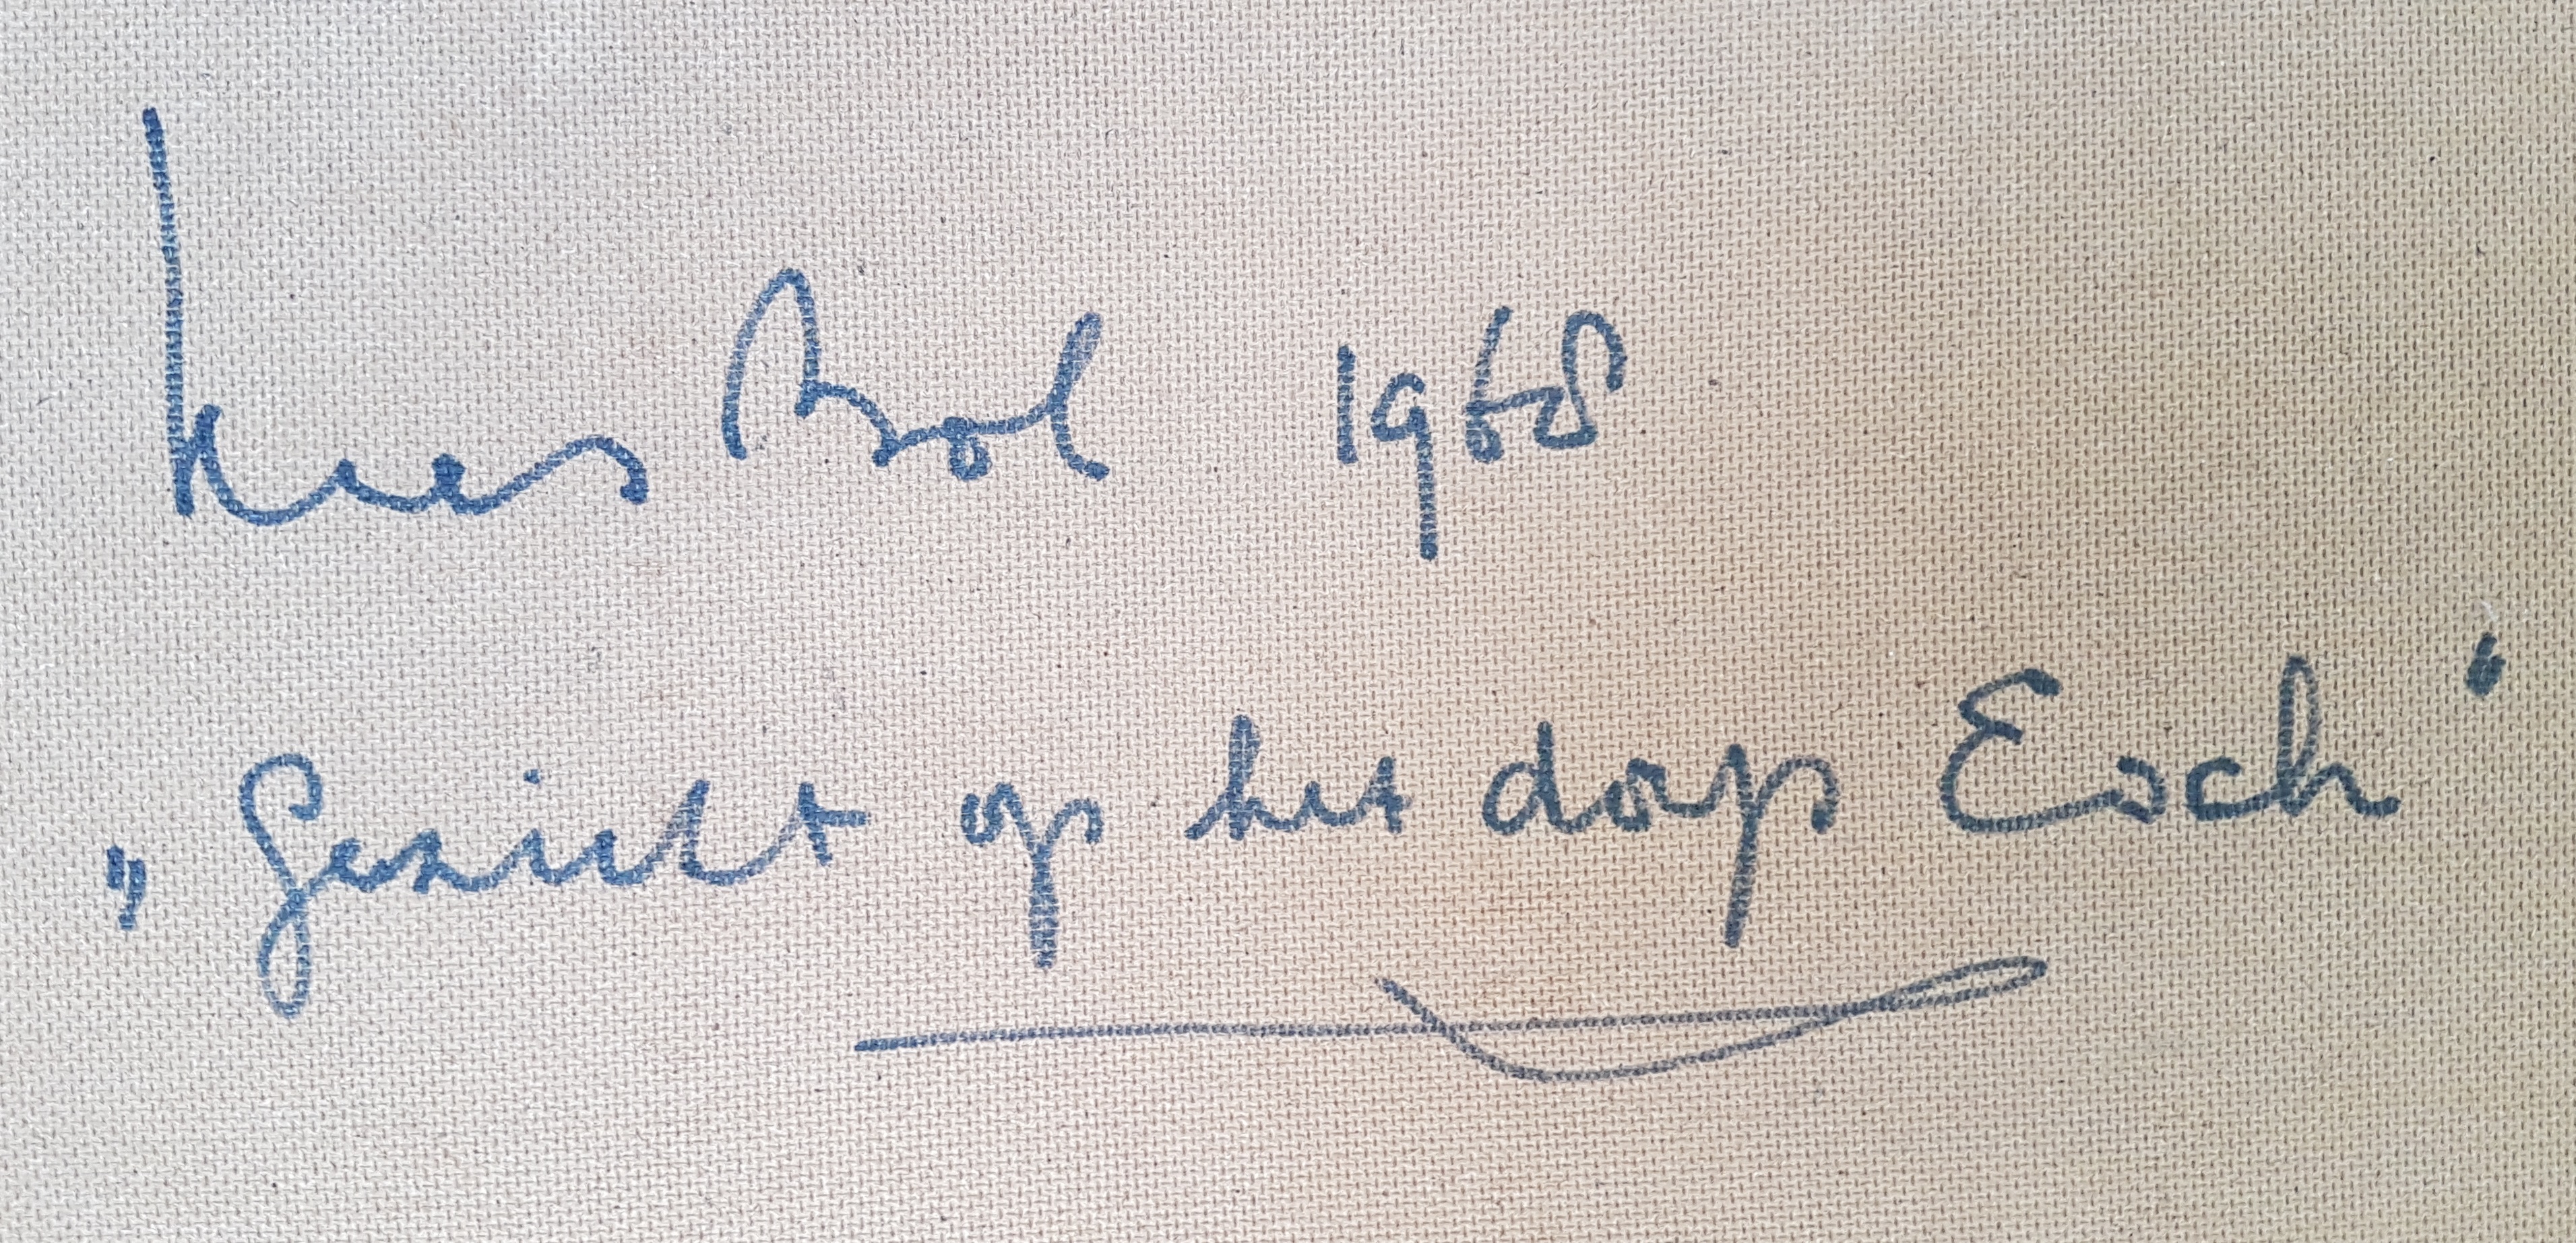 Kees Bol 1968
„Gezicht op het dorp Esch"